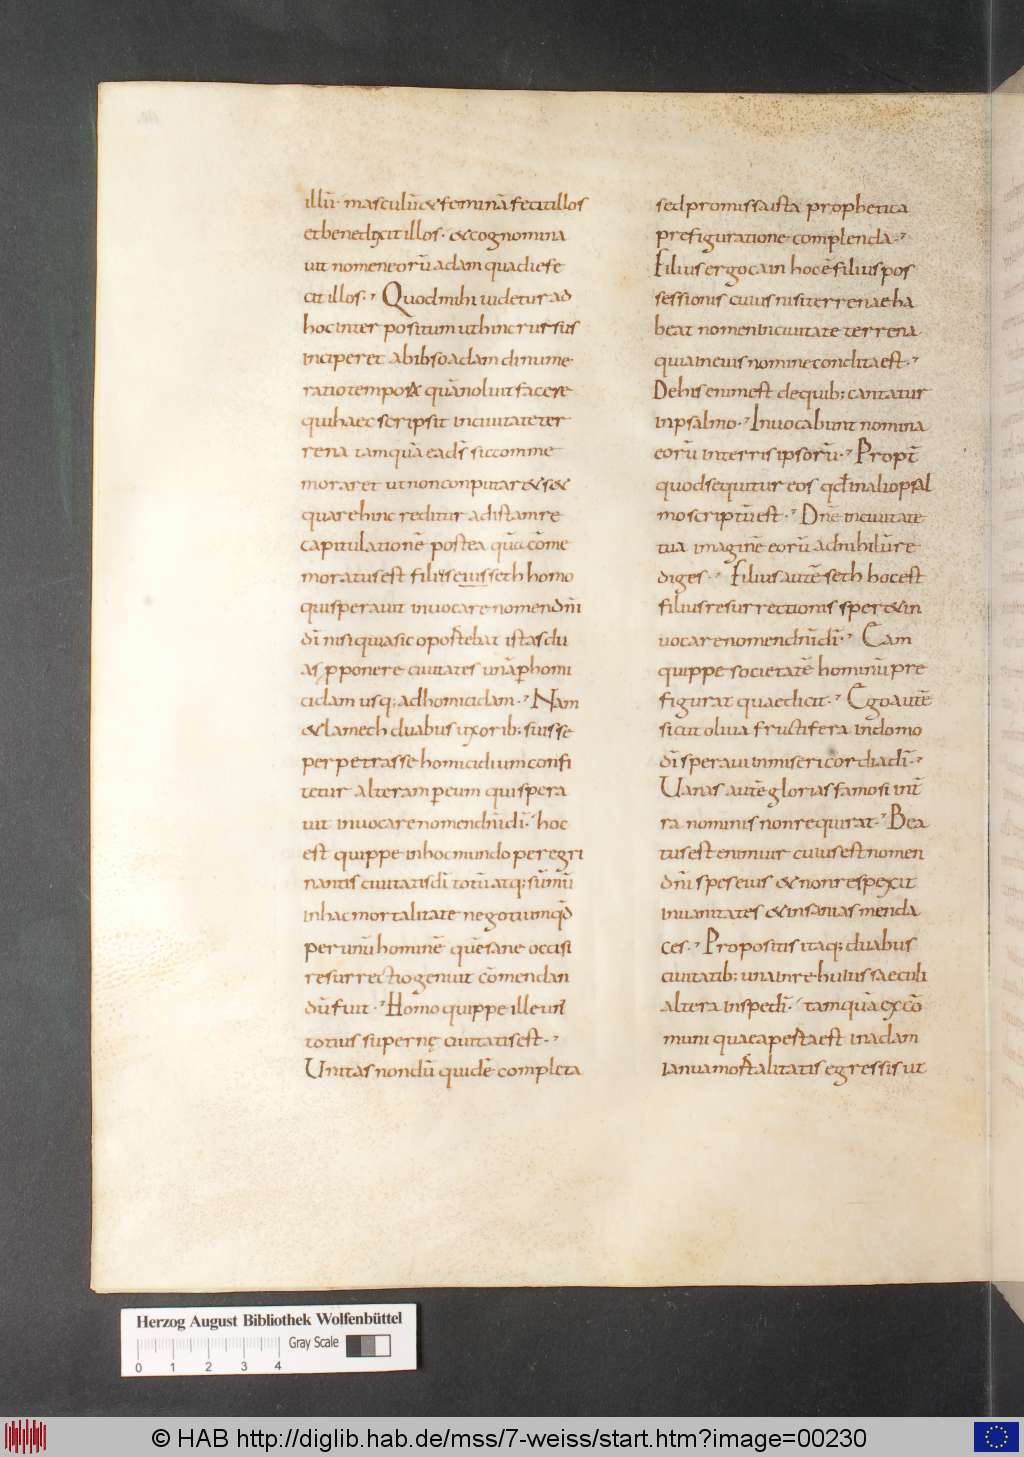 illū· masculū & feminā fecit illos
et benedixit illos· & cognomina
uit nomen eorū adam qua die fe
cit illos·, Quod mihi uidetur ad
hoc inter positum ut hinc rursus
inciperet ab ibso adam dinume
ratio tempoꝝ quā noluit facere
qui haec scripsit inciuitate ter
rena tamquā eā dš sic comme
moraret ut non conputar& s&
quare hinc reditur ad istam re
capitulationē postea quā cōme
moratus est filius eius seth homo
qui sperauit inuocare nomen dn̄i
dī nisi quia sic oportebat istas du
as ꝓponere ciuitates unā ꝑ homi
cidam usq; ad homicidam·, Nam
& lamech duabus uxorib; suis se
perpetrasse homicidium confi
tetur alteram ꝑ eum qui spera
uit inuocare nomen dn̄i dī· hoc
est quippe inhoc mundo peregri
nantis ciuitatis dī totū atq; sūmū
inhac mortalitate negotium qđ
per unū hominē quē sane occisi
resurrectio genuit cōmendan
dū fuit·, Homo quippe ille un'
totius supernę ciuitatis est·,
Unitas nondū quidē completa
sed promissa ista prophetica
prefiguratione complenda·,
Filius ergo cain hoc ē filius pos
sessionis cuius nisi terrenae ha
beat nomen inciuitate terrena
quia in eius nomine condita est·,
De his enim est de quib; cantatur
inpsalmo·, Inuocabunt nomina
eorū interris ipsorū·, Propt̄
quod sequitur eos qđ inalio psal
mo scriptū est·, Dn̄e inciuitate
tua imaginē eorū adnihilū re
diges·, Filius autē seth hoc est
filius resurrectionis sper& in
uocare nomen dn̄i dī·, Eam
quippe societatē hominū pre
figurat quae dicit·, Ego autē
sicut oliua fructifera indomo
dī speraui inmisericordia dī·,
Uanas autē glorias famosi int̄
ra nominis non requirat·, Bea
tus est enim uir cuius est nomen
dn̄i spes eius & non respexit
inuanitates & insanias menda
ces·, Propositis itaq; duabus
ciuitatib; una inre huius saeculi
altera inspe dī· tamquā ex cō
muni quae aperta est inadam
ianua mortalitatis egressis ut
Herzog August Bibliothek Wolfenbüttel
Gray Scale
0 1 2 3 4
© HAB http://diglib.hab.de/mss/7-weiss/start.htm?image=00230